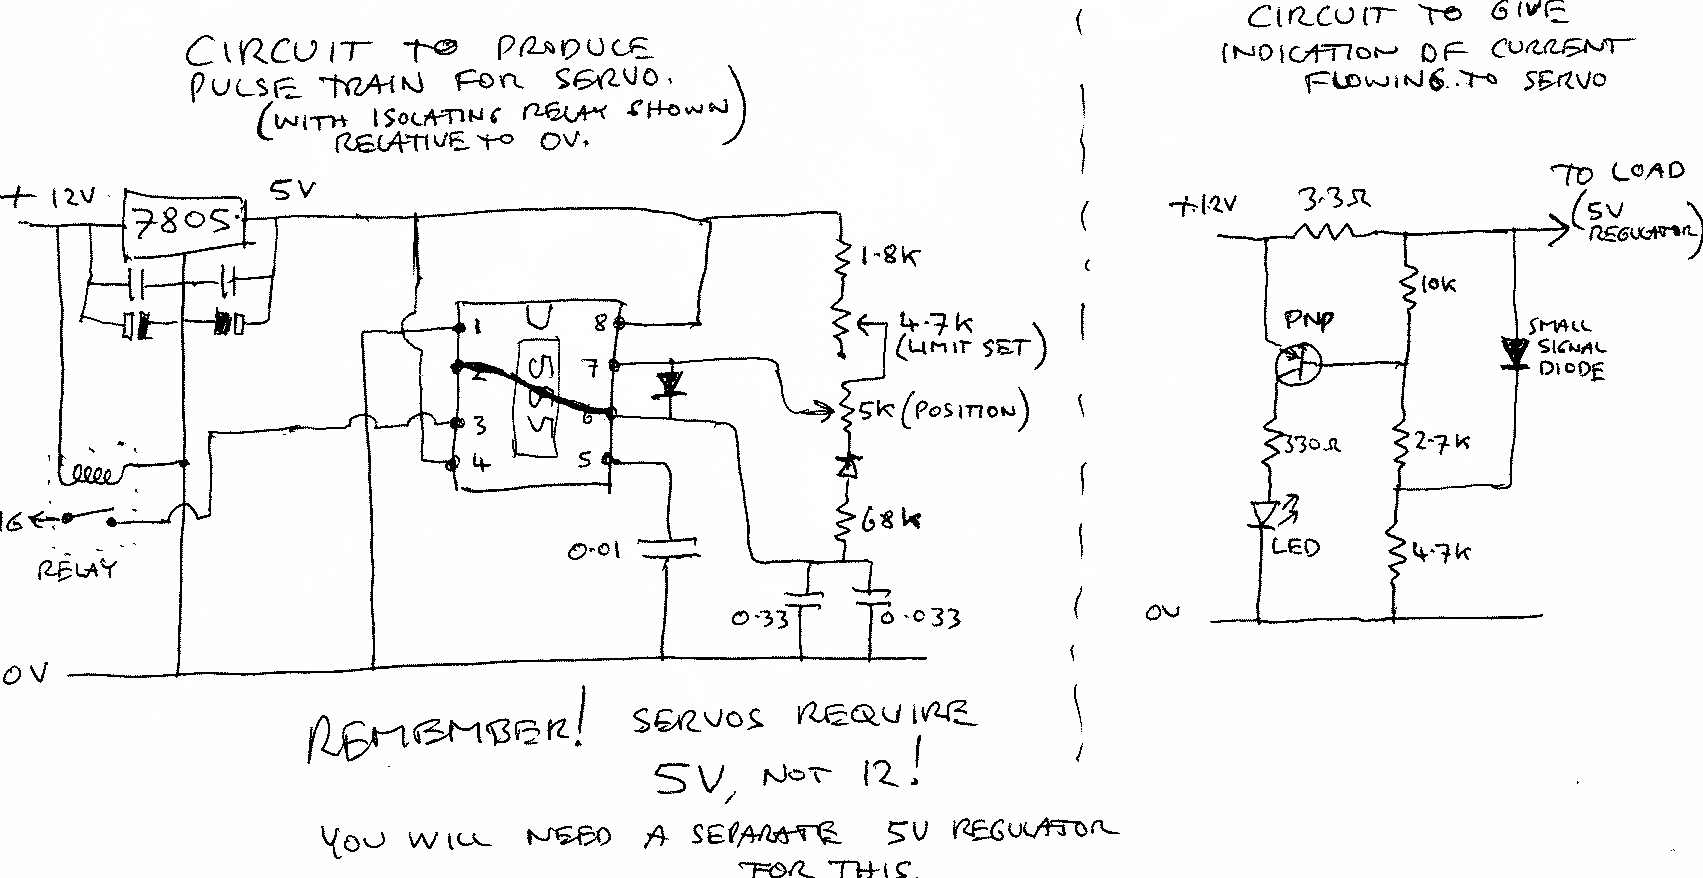 CIRCUIT TO PRODUCE
PULSE TRAIN FOR SERVO.
(WITH ISOLATING RELAY SHOWN)
RELATIVE TO 0V.
+ 12V
7805
5V
1.8K
4.7K
(LIMIT SET)
5K (POSITION)
68K
1
2
3
4
8
7
6
5
555
0.01
0.33
0.033
RELAY
0V
REMEMBER! SERVOS REQUIRE
5V, NOT 12!
YOU WILL NEED A SEPARATE 5V REGULATOR
FOR THIS.
CIRCUIT TO GIVE
INDICATION OF CURRENT
FLOWING TO SERVO
+12V
3.3Ω
TO LOAD
(5V
REGULATOR)
10K
PNP
SMALL
SIGNAL
DIODE
330Ω
2.7K
LED
4.7K
0V